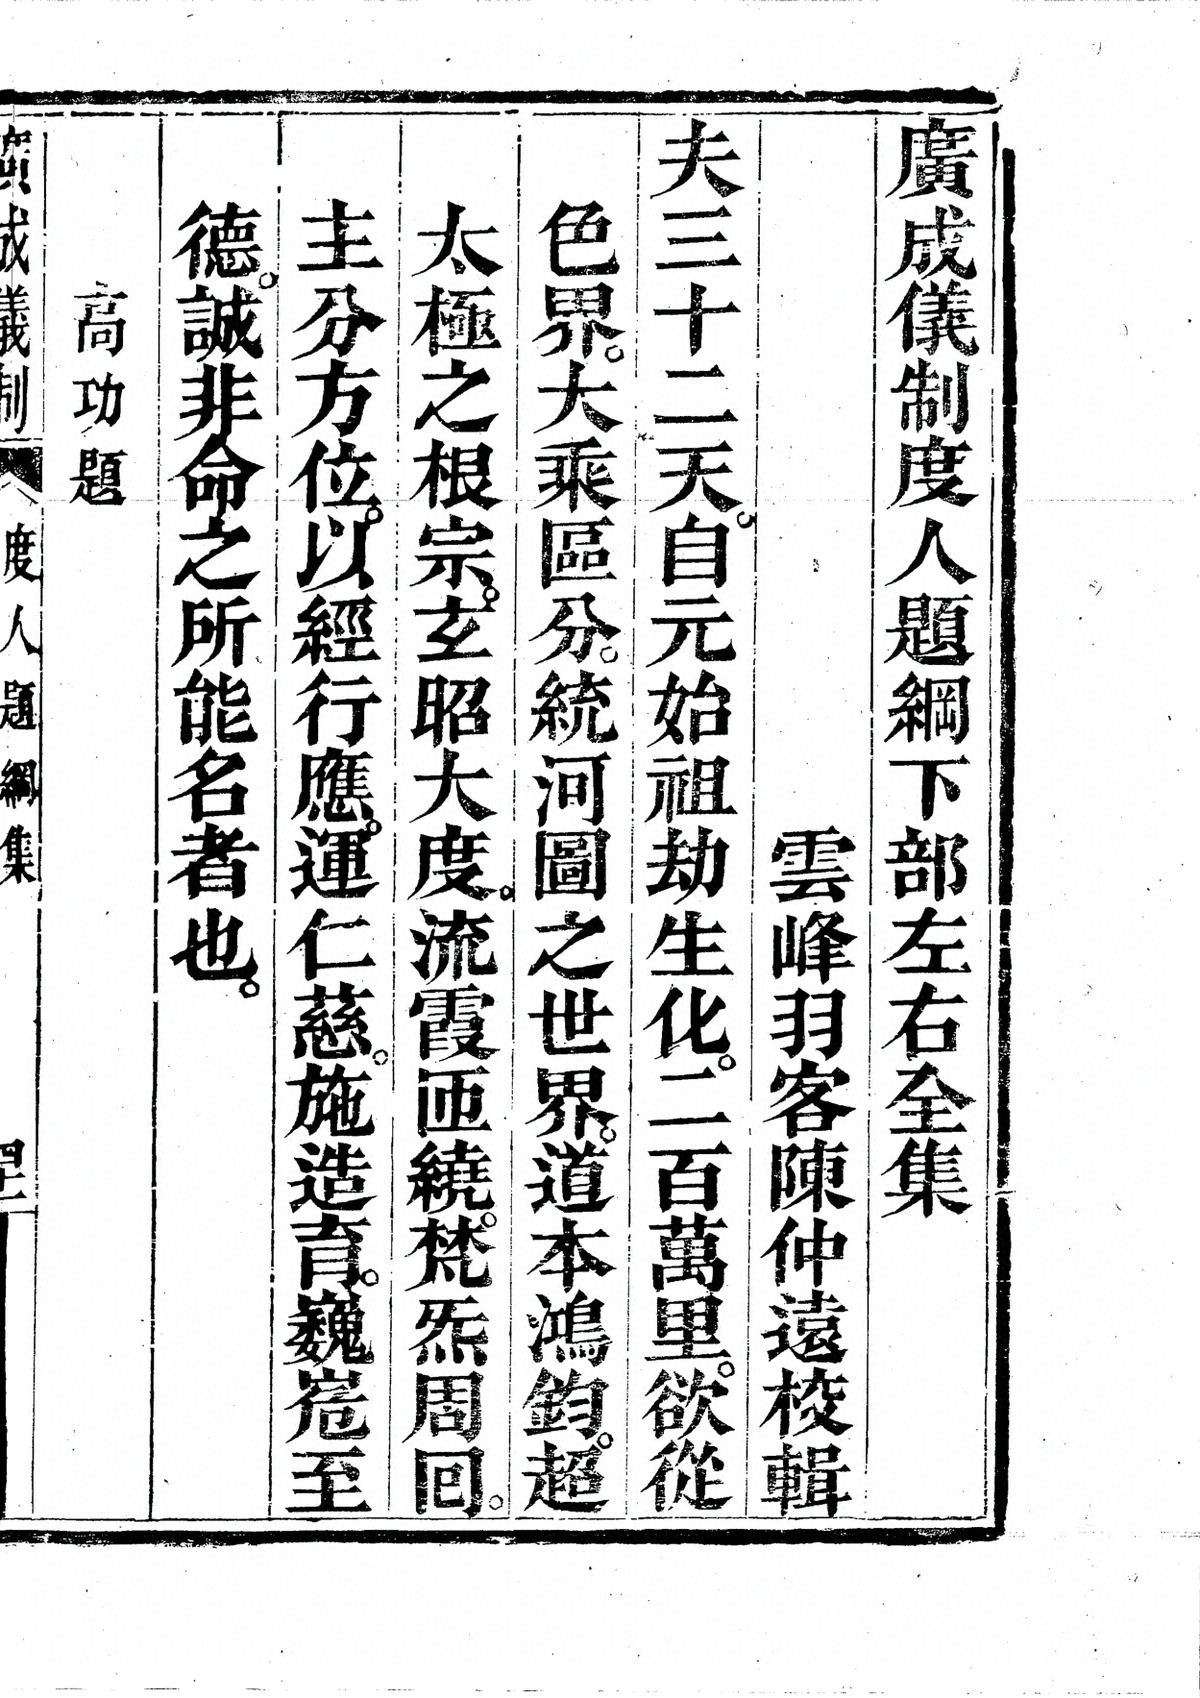 廣成儀制度人題綱下部左右全集
雲峰羽客陳仲遠校輯
夫三十二天。自元始祖劫生化。二百萬里。欲從
色界。大乘區分。統河圖之世界。道本鴻鈞。超
太極之根宗。玄昭大度。流霞匝繞。梵炁周回。
主分方位。以經行應。運仁慈。施造育。巍峞至
德。誠非命之所能名者也。
高功題
廣成儀制 度人題綱集